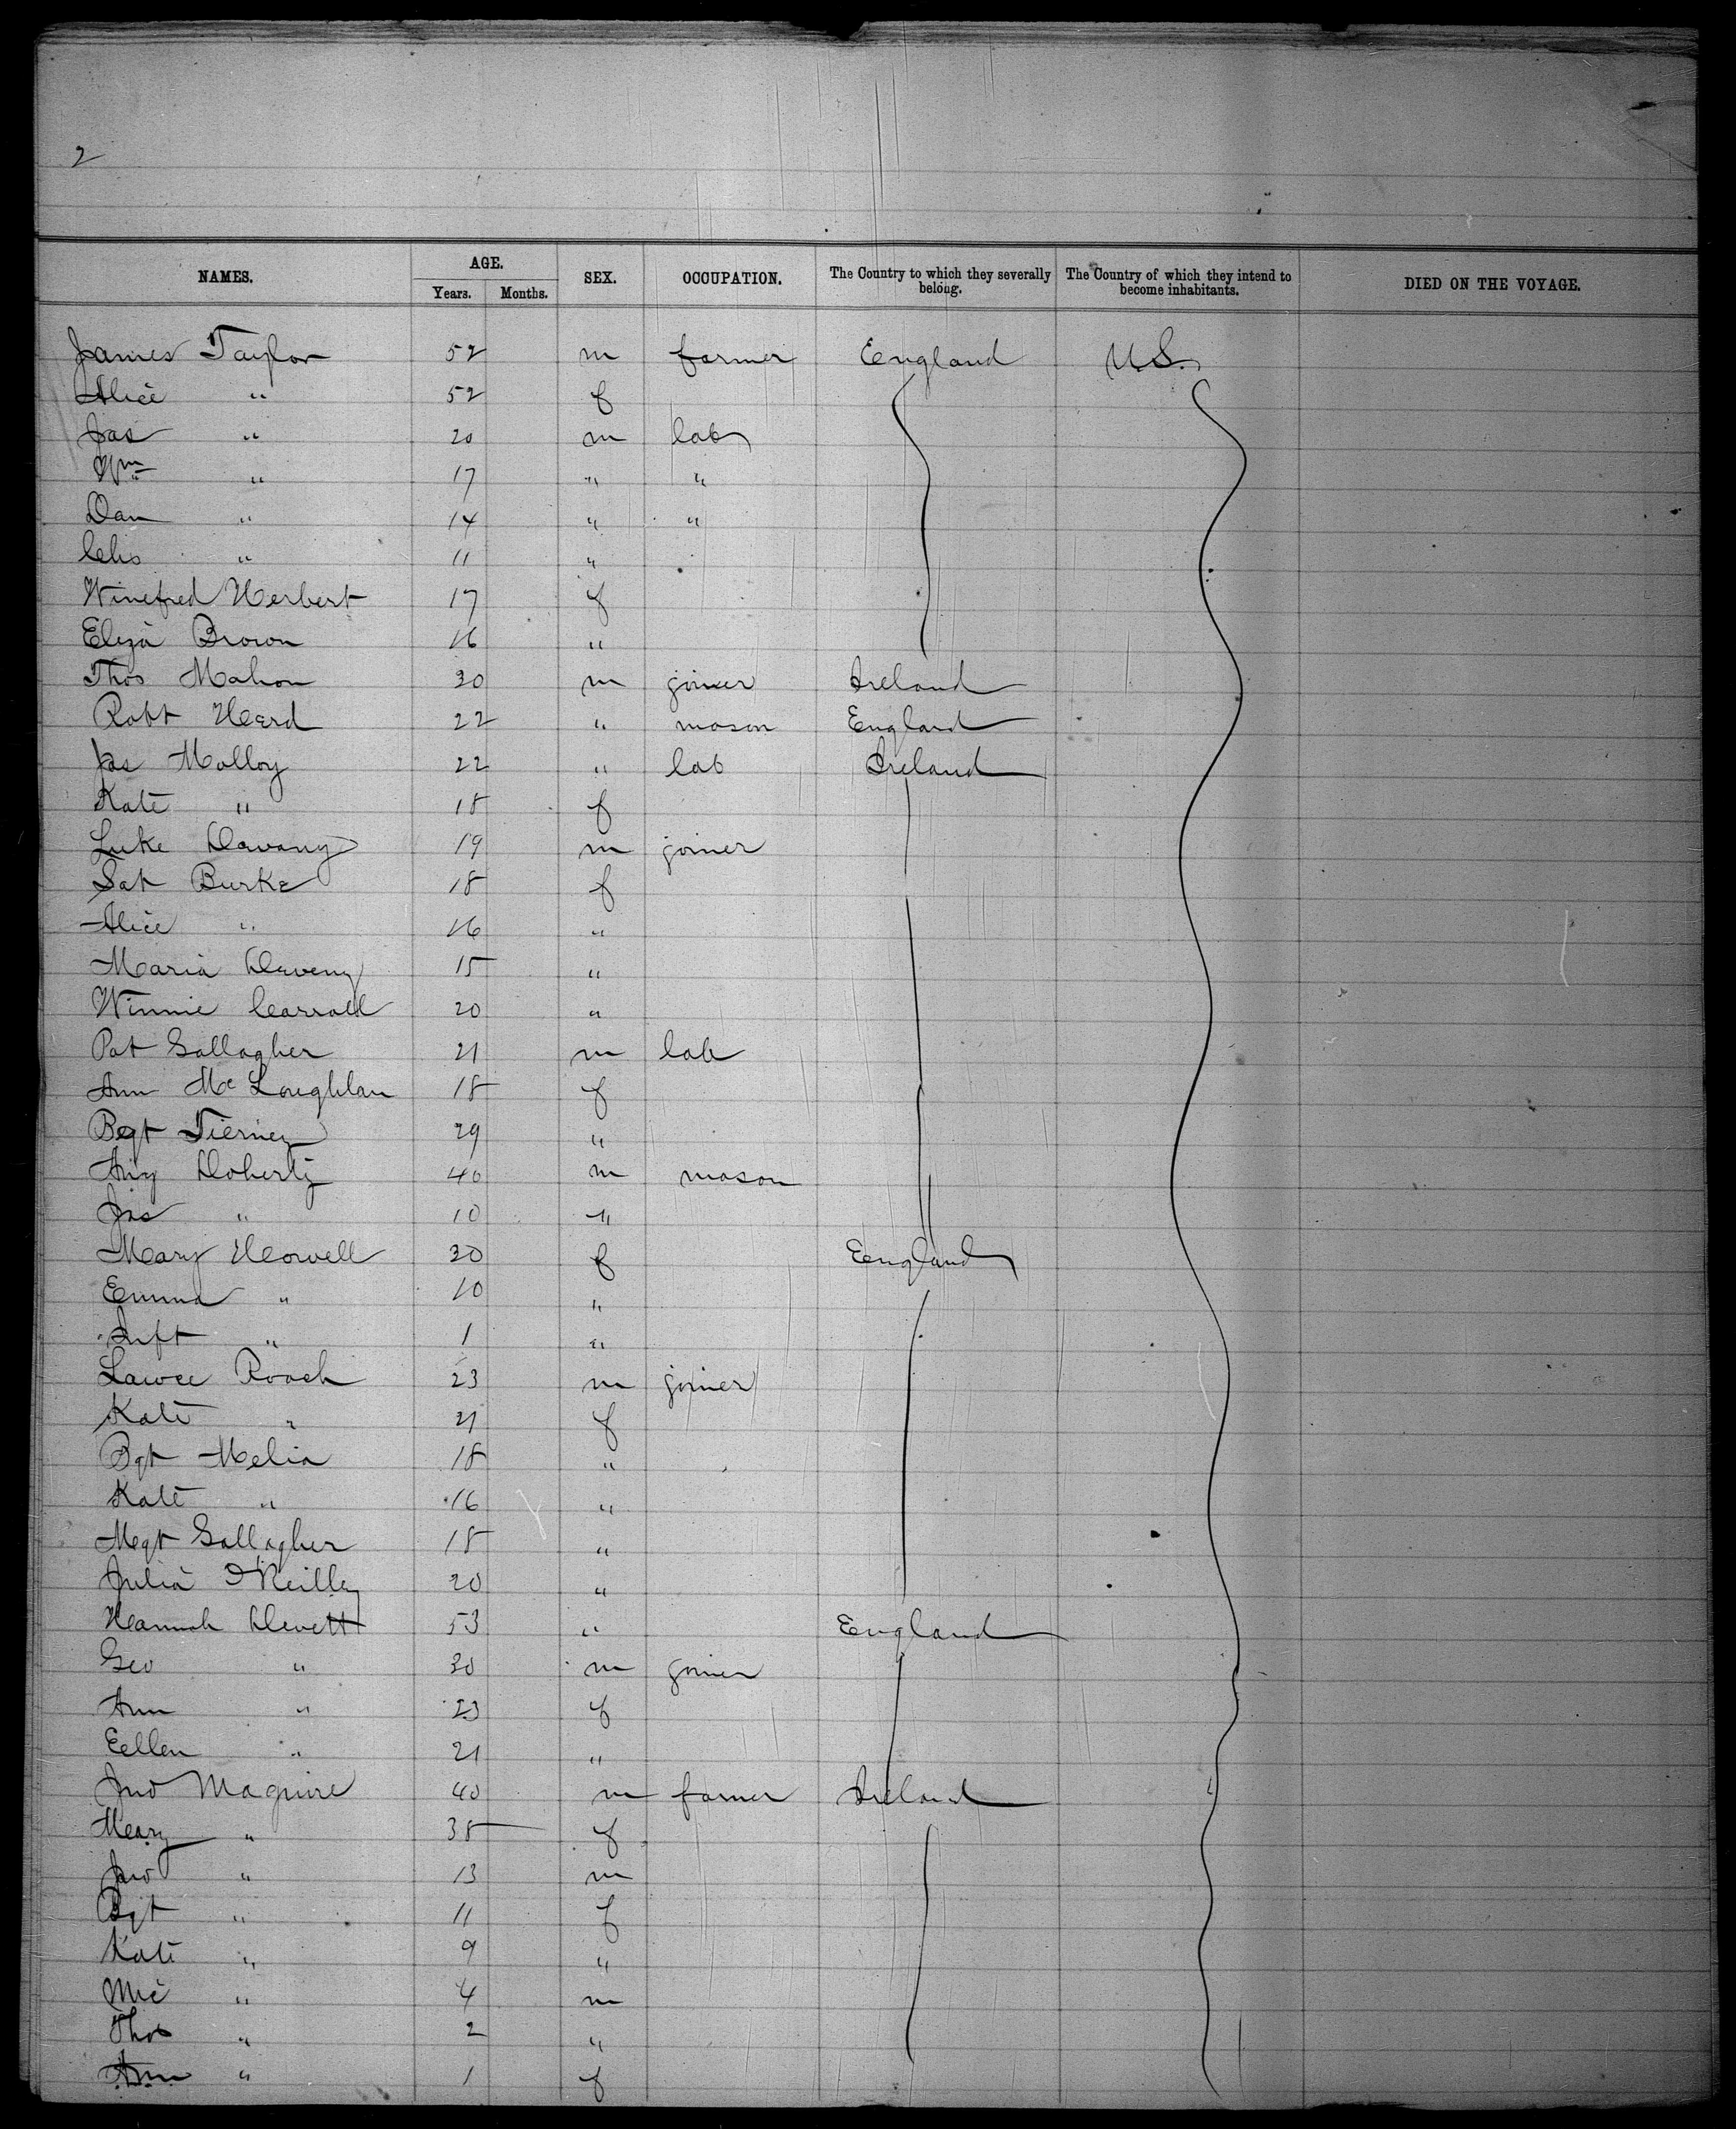 2
NAMES. AGE. SEX. OCCUPATION. The Country to which they severally belong. The Country of which they intend to become inhabitants. DIED ON THE VOYAGE.
Years. Months.
James Taylor 52 m farmer England U.S.
Alice " 52 f
Jas " 20 m lab
Wm " 17 " "
Dan " 14 " "
Chs " 11 "
Winefred Herbert 17 f
Eliza Brown 16 "
Thos Mahon 30 m joiner Ireland
Robt Heard 22 " mason England
Jas Molloy 22 " lab Ireland
Kate " 18 f
Luke Davany 19 m joiner
Sat Burke 18 f
Alice " 16 "
Maria Daveny 15 "
Winnie Carroll 20 "
Pat Gallagher 21 m lab
Ann McLoughlan 18 f
Bgt Tierney 29 "
Doherty 40 m mason
Jas " 10 "
Mary Howell 30 f England
Emma " 10 "
Inft " 1 "
Lawce Roach 23 m joiner
Kate " 21 f
Bgt Melia 18 "
Kate " 16 "
Mgt Gallagher 18 "
Julia O'Reilly 20 "
Hannah Devett 53 " England
Geo " 30 m joiner
Ann " 23 f
Eellen " 21 "
Jno Maguire 40 m farmer Ireland
Mary " 38 f
Jno " 13 m
Bgt " 11 f
Kate " 9 "
Mic " 4 m
Thos " 2 "
Ann " 1 f